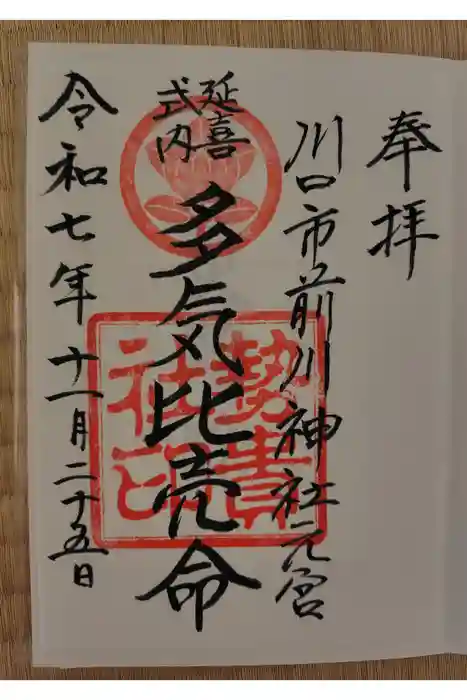 奉拝
川口市前川神社元宮
延喜
式内
多気比売命
令和七年十一月二十五日
社印